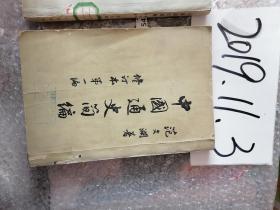 范文瀾著
中國通史簡編
修訂本第一編
2019.11.3